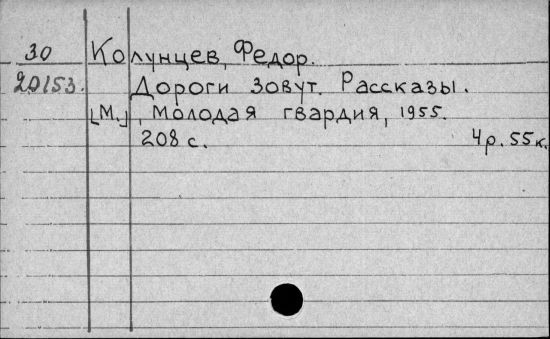 30 Колунцев, Федор.
20153. Дороги зовут. Рассказы.
[М.], Молодая гвардия, 1955.
208 с. 4 р. 55 к.